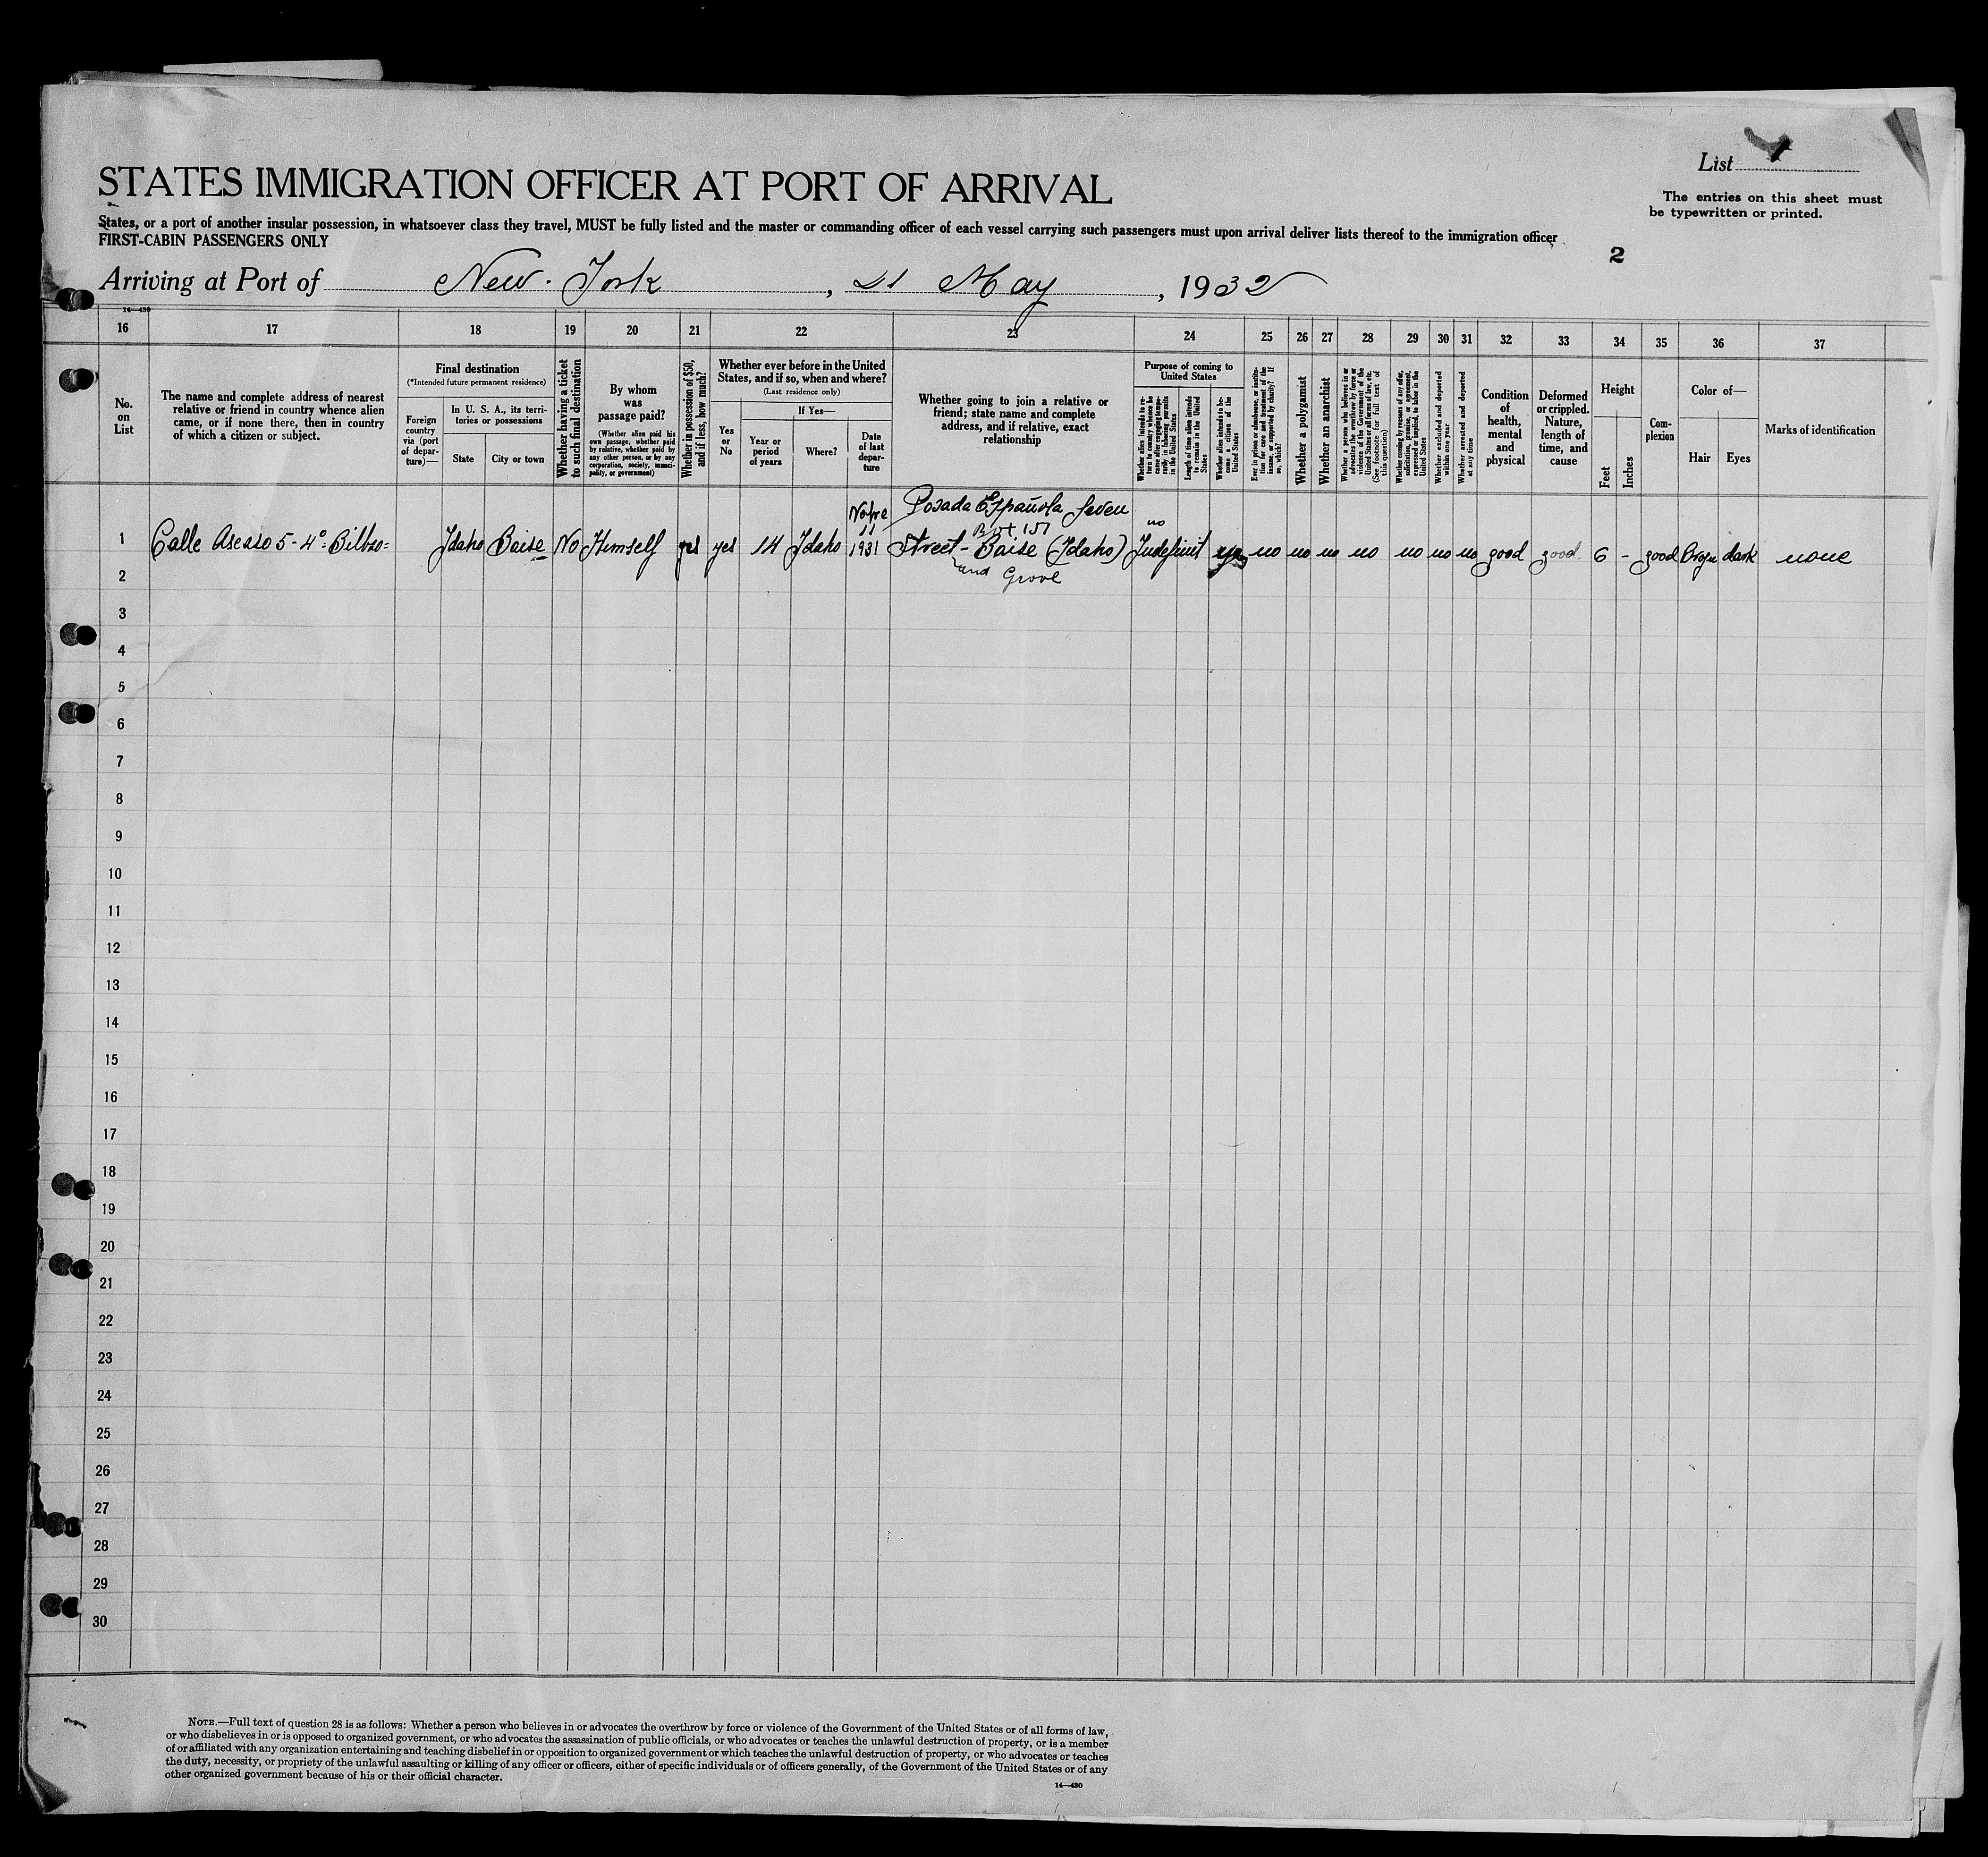 List
STATES IMMIGRATION OFFICER AT PORT OF ARRIVAL
The entries on this sheet must
be typewritten or printed.
States, or a port of another insular possession, in whatsoever class they travel, MUST be fully listed and the master or commanding officer of each vessel carrying such passengers must upon arrival deliver lists thereof to the immigration officer
FIRST-CABIN PASSENGERS ONLY
2
Arriving at Port of New-York, 21 May, 1932
14—430
16 17 18 19 20 21 22 23 24 25 26 27 28 29 30 31 32 33 34 35 36 37
No. on List
The name and complete address of nearest relative or friend in country whence alien came, or if none there, then in country of which a citizen or subject.
Final destination
(*Intended future permanent residence)
Foreign country via (port of departure)—
In U. S. A., its territories or possessions
State
City or town
Whether having a ticket to such final destination
By whom was passage paid?
(Whether alien paid his own passage, whether paid by relative, whether paid by any other person, or by any corporation, society, municipality, or government)
Whether in possession of $50, and if less, how much?
Whether ever before in the United States, and if so, when and where?
(Last residence only)
Yes or No
If Yes—
Year or period of years
Where?
Date of last departure
Whether going to join a relative or friend; state name and complete address, and if relative, exact relationship
Purpose of coming to United States
Whether alien intends to return to country whence he came after engaging temporarily in laboring pursuits in the United States
Length of time alien intends to remain in the United States
Whether alien intends to become a citizen of the United States
Ever in prison or almshouse, or institution for care and treatment of the insane, or supported by charity? If so, which?
Whether a polygamist
Whether an anarchist
Whether a person who believes in or advocates the overthrow by force or violence of the Government of the United States or all forms of law, etc. (See footnote for full text of this question)
Whether coming by reasons of any offer, solicitation, promise, or agreement, expressed or implied, to labor in the United States
Whether excluded and deported within one year
Whether arrested and deported at any time
Condition of health, mental and physical
Deformed or crippled. Nature, length of time, and cause
Height
Feet
Inches
Complexion
Color of—
Hair
Eyes
Marks of identification
Novre Posada Española Seven
11 Box 157 no
1 Calle Aseaso 5-4º=Bilbao= Idaho Boise No Himself yes yes 14 Idaho 1931 Street - Boise (Idaho) Indefinit yes no no no no no no no good good 6 - good dark none
and Grove
2
3
4
5
6
7
8
9
10
11
12
13
14
15
16
17
18
19
20
21
22
23
24
25
26
27
28
29
30
NOTE.—Full text of question 28 is as follows: Whether a person who believes in or advocates the overthrow by force or violence of the Government of the United States or of all forms of law,
or who disbelieves in or is opposed to organized government, or who advocates the assassination of public officials, or who advocates or teaches the unlawful destruction of property, or is a member
of or affiliated with any organization entertaining and teaching disbelief in or opposition to organized government or which teaches the unlawful destruction of property, or who advocates or teaches
the duty, necessity, or propriety of the unlawful assaulting or killing of any officer or officers, either of specific individuals or of officers generally, of the Government of the United States or of any
other organized government because of his or their official character.
14—430